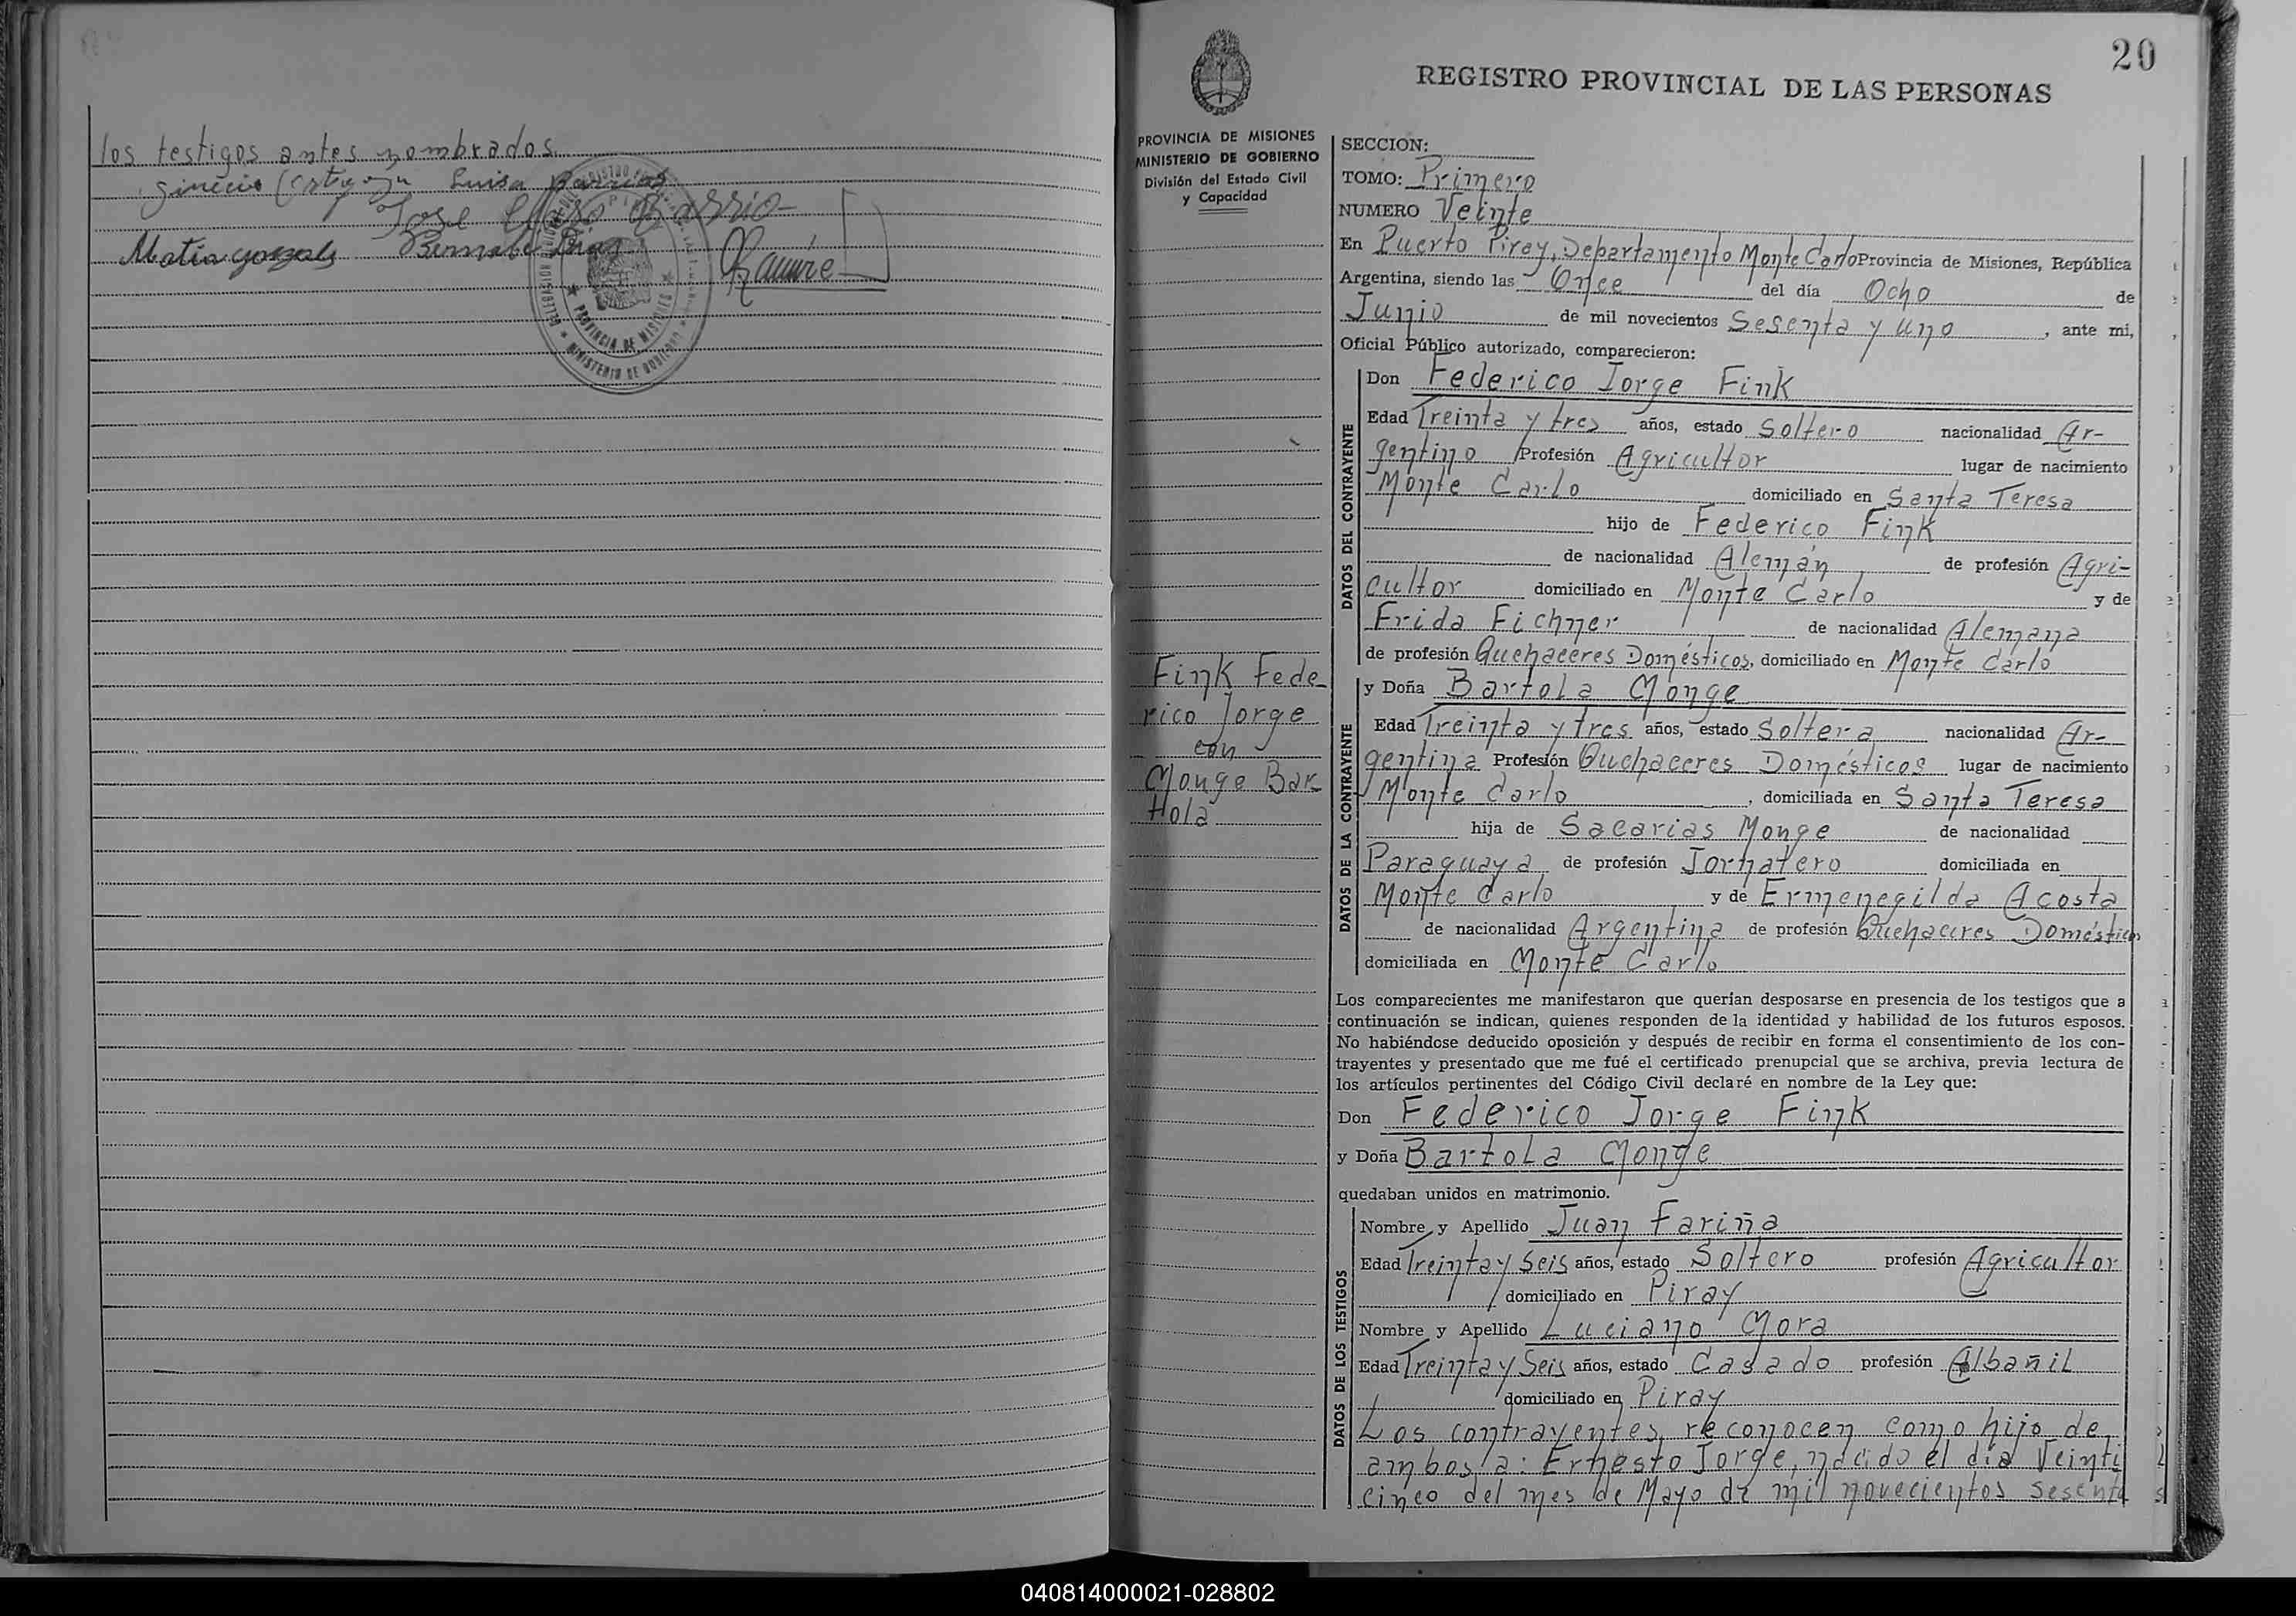 los testigos antes nombrados.
Luisa Barrios
Jose Barrio
Matia gonzale Bernabe Dias Ramire
MINISTERIO DE GOBIERNO
PROVINCIA DE MISIONES
20
REGISTRO PROVINCIAL DE LAS PERSONAS
PROVINCIA DE MISIONES
MINISTERIO DE GOBIERNO
División del Estado Civil
y Capacidad
Fink Fede
rico Jorge
con
Monge Bar
tola
SECCION:
TOMO: Primero
NUMERO Veinte
En Puerto Piray, Departamento Monte Carlo Provincia de Misiones, República
Argentina, siendo las Once del día Ocho de
Junio de mil novecientos Sesenta y uno, ante mi,
Oficial Público autorizado, comparecieron:
DATOS DEL CONTRAYENTE
Don Federico Jorge Fink
Edad Treinta y tres años, estado Soltero nacionalidad Ar-
gentino Profesión Agricultor lugar de nacimiento
Monte Carlo domiciliado en Santa Teresa
hijo de Federico Fink
de nacionalidad Alemán de profesión Agri-
cultor domiciliado en Monte Carlo y de
Frida Eichner de nacionalidad Alemana
de profesión Quehaceres Domésticos, domiciliado en Monte Carlo
DATOS DE LA CONTRAYENTE
y Doña Bartola Monge
Edad Treinta y tres años, estado Soltera nacionalidad Ar-
gentina Profesión Quehaceres Domésticos lugar de nacimiento
Monte Carlo, domiciliada en Santa Teresa
hija de Sacarias Monge de nacionalidad
Paraguaya de profesión Jornatero domiciliada en
Monte Carlo y de Ermenegilda Acosta
de nacionalidad Argentina de profesión Quehaceres Domésticos
domiciliada en Monte Carlo
Los comparecientes me manifestaron que querían desposarse en presencia de los testigos que a
continuación se indican, quienes responden de la identidad y habilidad de los futuros esposos.
No habiéndose deducido oposición y después de recibir en forma el consentimiento de los con-
trayentes y presentado que me fué el certificado prenupcial que se archiva, previa lectura de
los artículos pertinentes del Código Civil declaré en nombre de la Ley que:
Don Federico Jorge Fink
y Doña Bartola Monge
quedaban unidos en matrimonio.
DATOS DE LOS TESTIGOS
Nombre y Apellido Juan Fariña
Edad Treinta y Seis años, estado Soltero profesión Agricultor
domiciliado en Piray
Nombre y Apellido Luciano Mora
Edad Treinta y Seis años, estado Casado profesión Albañil
domiciliado en Piray
Los contrayentes, reconocen como hijo de
ambos a: Ernesto Jorge, nacido el día Veinti
cinco del mes de Mayo de mil novecientos sesenta
040814000021-028802